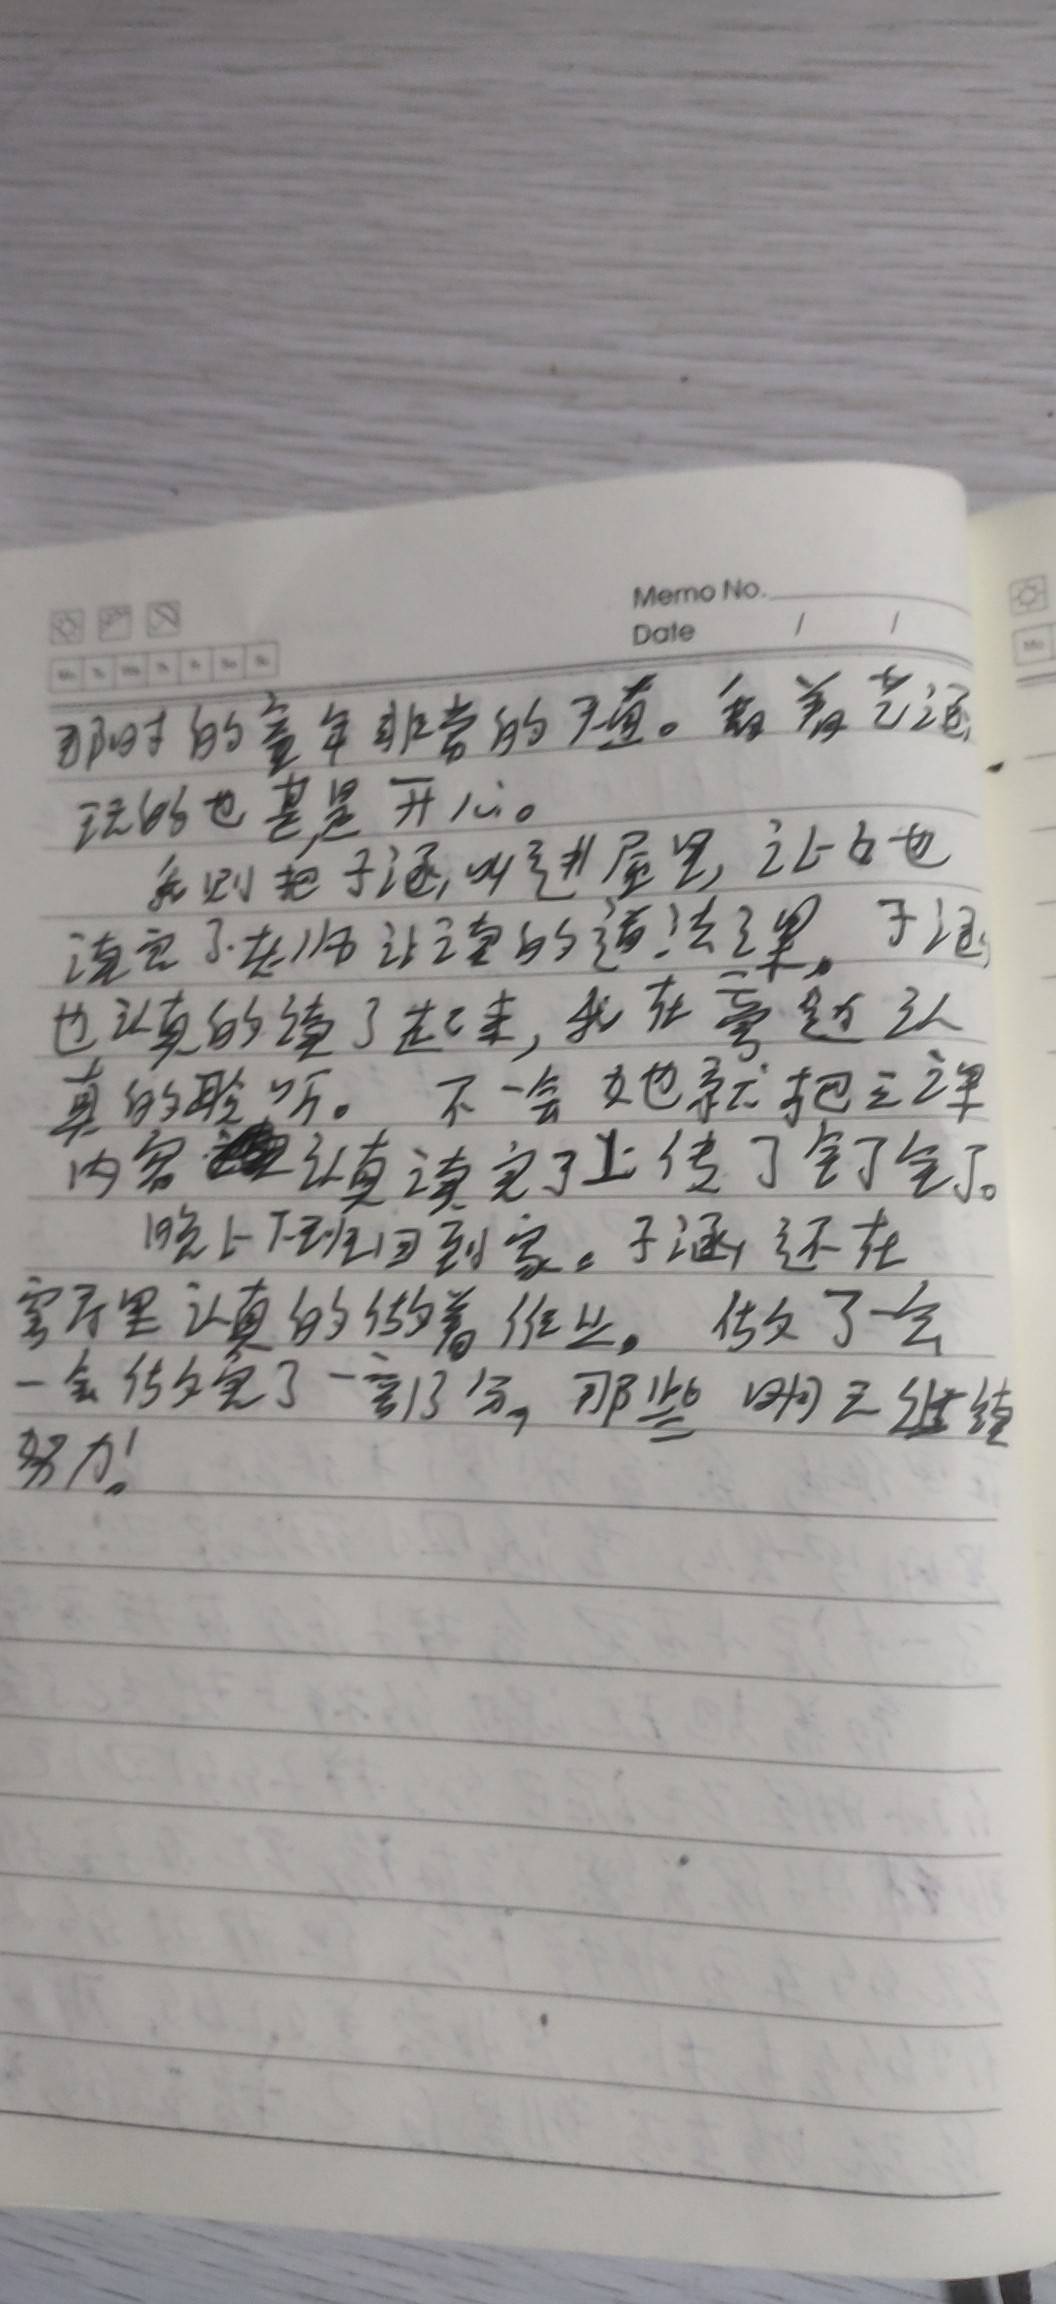 Memo No.
Date / /
那时的童年非常的天真。每着艺涵
玩的也甚是开心。
我则把子涵叫进屋里，让她
读完了老师让读的道法课。子涵
也认真的读了起来，我在旁边认
真的聆听。不一会她就把三课
内容认真读完了上传了钉钉了。
晚上下班回到家。子涵还在
客厅里认真的做着作业。做了一会
一会做完了一部分，那些明天继续
努力！